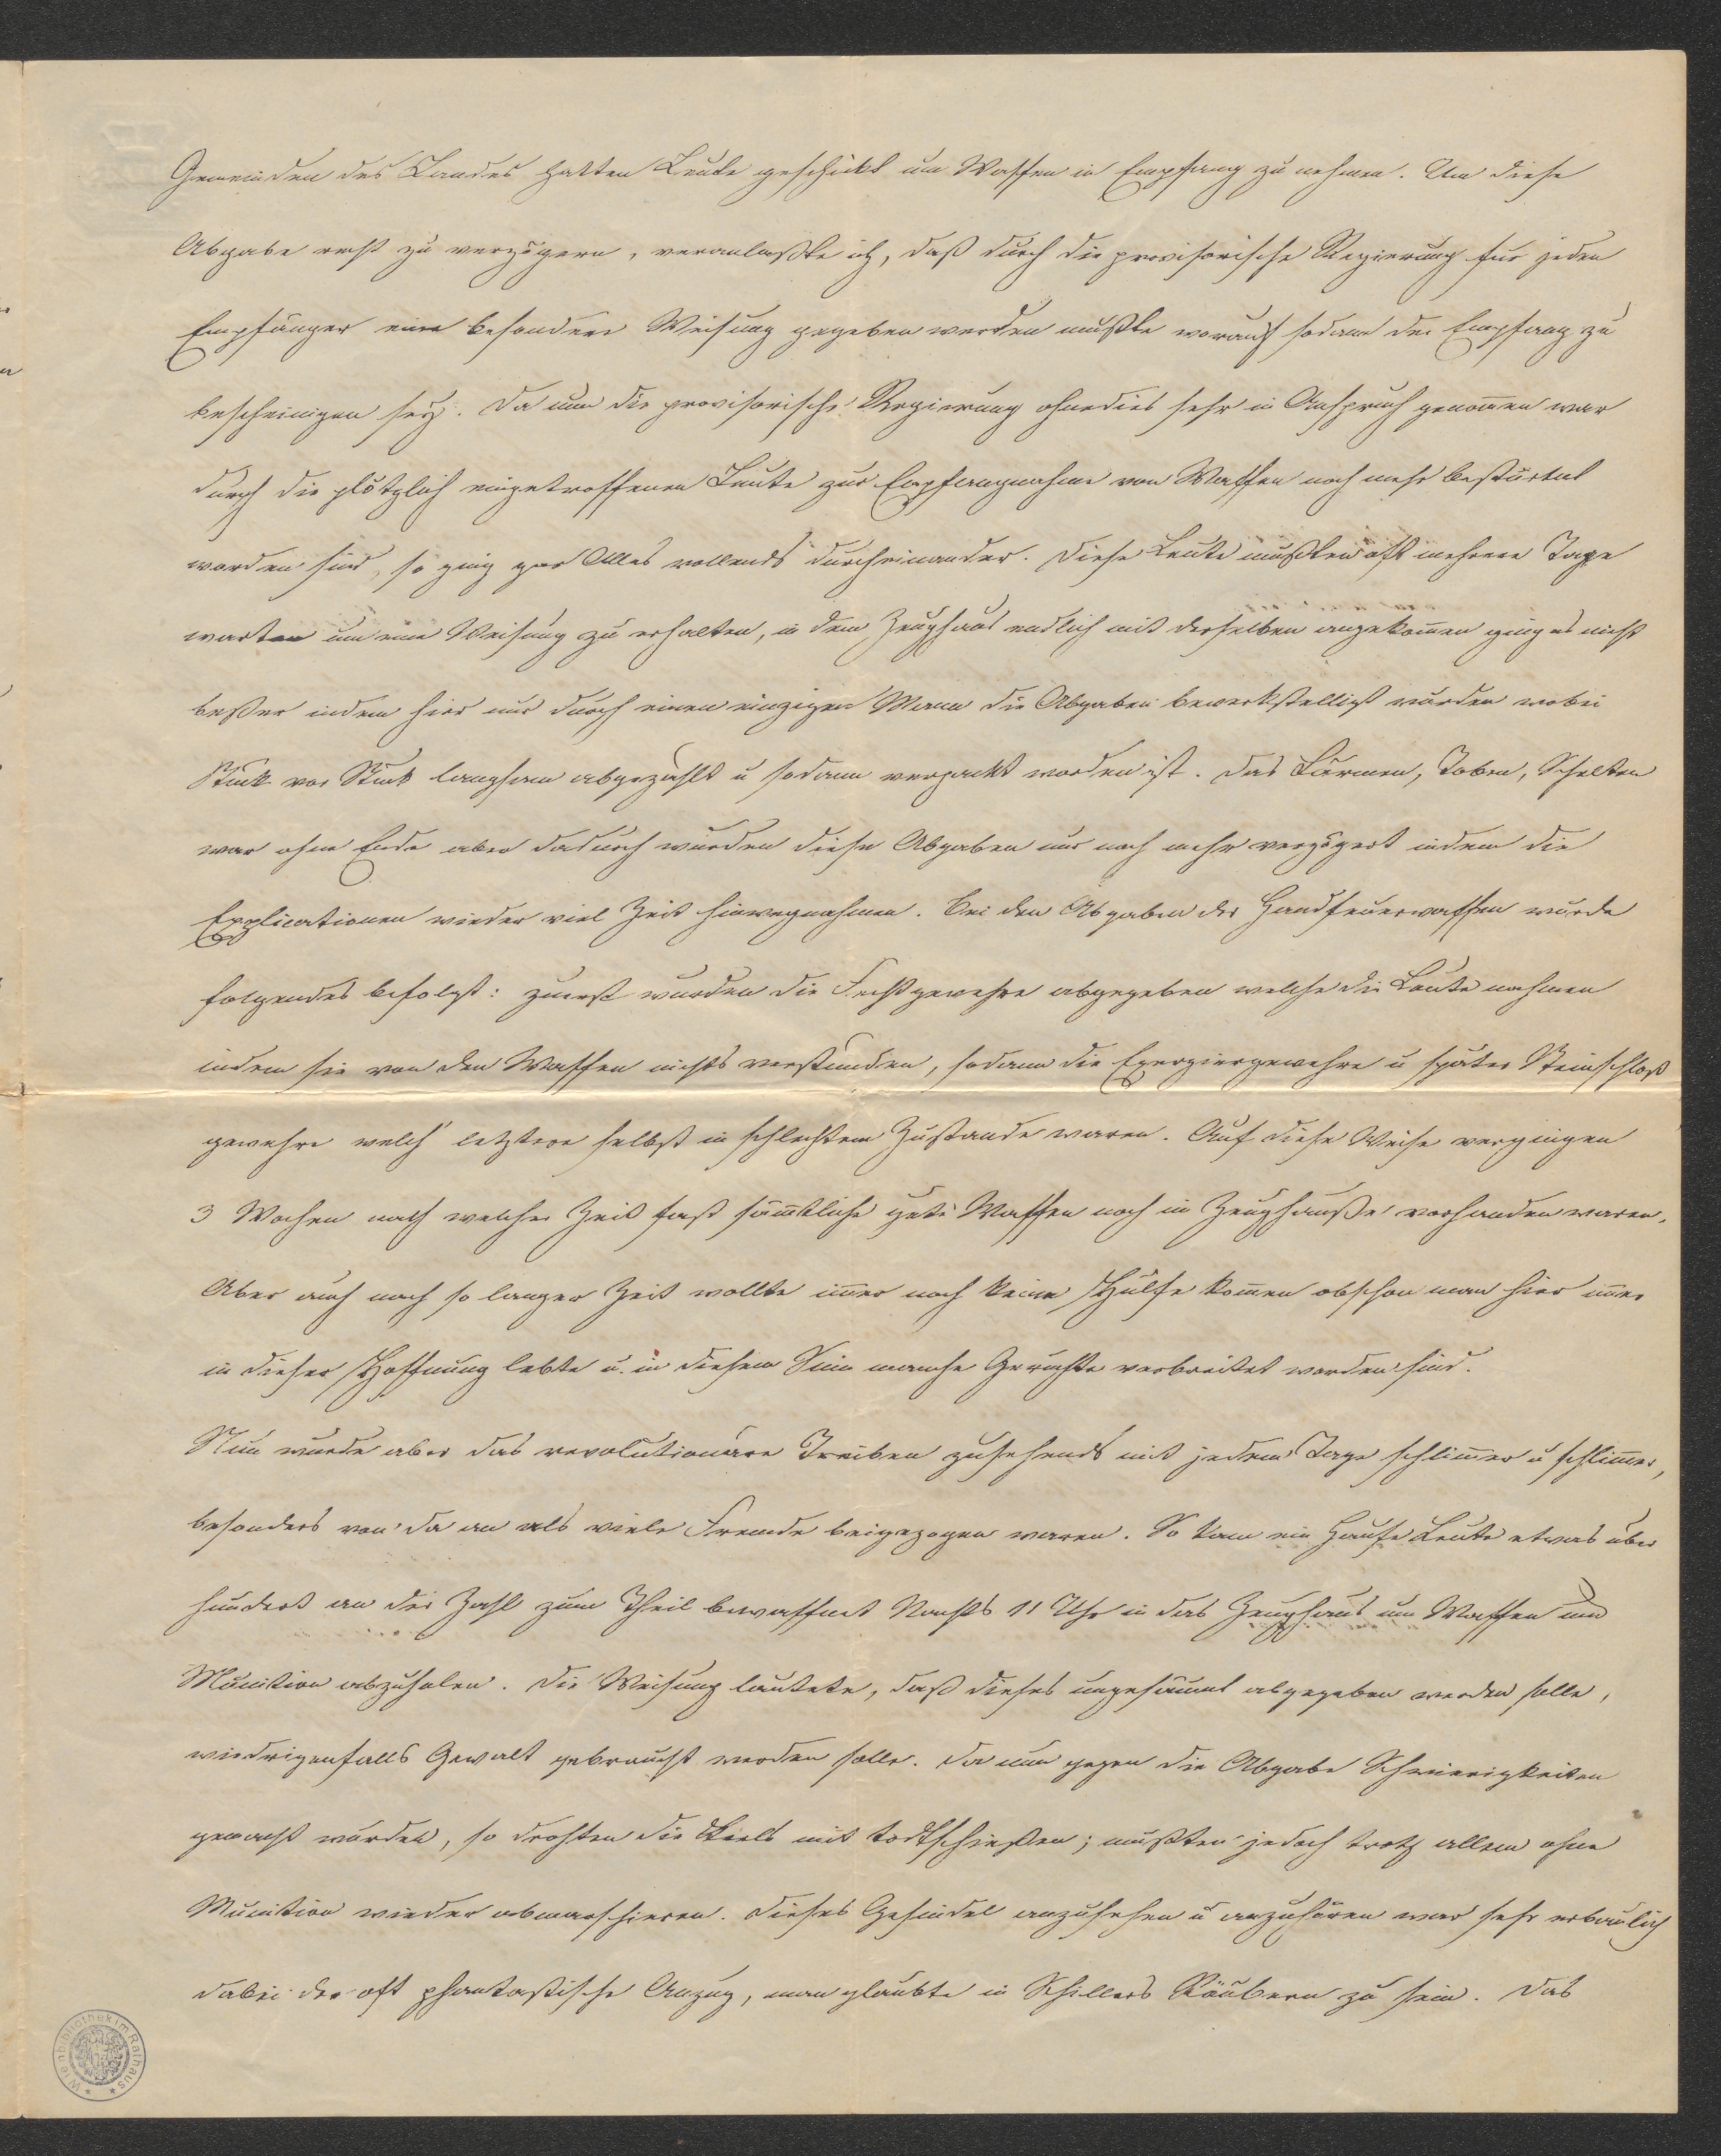 Gemeinden des Landes hatten Leute geschickt um Waffen in Empfang zu nehmen. Um diese
Abgabe recht zu verzögern, veranlaßte ich, daß durch die provisorische Regierung für jeden
Empfänger eine besondere Weisung gegeben werden mußte worauf sodann der Empfang zu
bescheinigen sey. Da nun die provisorische Regierung ohnedies sehr in Anspruch genom̅en war
durch die plötzlich eingetroffenen Leute zur Empfangnahme von Waffen noch mehr bestürmt
worden sind, so ging gar Alles vollends durcheinander. Diese Leute mußten oft mehrere Tage
warten um eine Weisung zu erhalten, in dem Zeughaus endlich mit derselben angekom̅en ging es nicht
beßer indem hier nur durch einen einzigen Mann die Abgaben bewerkstelligt wurden wobei
Stück vor Stück langsam abgezählt u sodann verpackt worden ist. Das Lärmen, Toben, Schelten
war ohne Ende aber dadurch wurden diese Abgaben nur noch mehr verzögert indem die
Explicationen wieder viel Zeit hinwegnahmen. Bei den Abgaben der Handfeuerwaffen wurde
folgendes befolgt: zuerst wurden die Fechtgewehre abgegeben welche die Leute nahmen
indem sie von den Waffen nichts verstunden, sodann die Exerziergewehre u später Steinschloß
gewehre welch' letztere selbst in schlechtem Zustande waren. Auf diese Weise vergingen
3 Wochen nach welcher Zeit fast säm̅tliche gute Waffen noch im Zeughauße vorhanden waren.
Aber auch nach so langer Zeit wollte im̅er noch keine Hülfe kom̅en obschon man hier im̅er
in dieser Hoffnung lebte u. in diesem Sinn manche Gerüchte verbreitet worden sind.
Nun wurde aber das revolutionäre Treiben zusehends mit jedem Tage schlim̅er u schlim̅er,
besonders von da an als viele Fremde beigezogen waren. So kam ein Haufe Leute etwas über
hundert an der Zahl zum Theil bewaffnet Nachts 11 Uhr in das Zeughaus um Waffen und
Munition abzuholen. Die Weisung lautete, daß dieses ungesäumt abgegeben werden solle,
wiedrigenfalls Gewalt gebraucht werden solle. Da nun gegen die Abgabe Schwierigkeiten
gemacht wurden, so drohten die Kerls mit todtschießen; mußten jedoch trotz allem ohne
Munition wieder abmarschieren. Dieses Gesindel anzusehen u anzuhören war sehr erbaulich
dabei der oft phantastische Anzug, man glaubte in Schillers Räubern zu sein. Das
Wienbibliothek im Rathaus